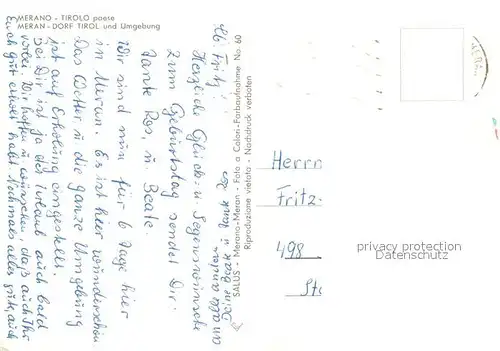 MERANO - TIROLO paese
MERAN - DORF TIROL und Umgebung
Lb. Fritz!
Herzliche Glück- u. Segenswünsche
zum Geburtstag sendet Dir
Tante Ros, u. Beate.
Wir sind nun für 6 Tage hier
in Meran. Es ist hier wunderschön
Das Wetter u die ganze Umgebung
ist auf Erholung eingestellt
Bei Dir ist ja der Urlaub auch bald
vorbei. Wir hoffen u wünschen, daß auch Ihr
Euch gut erholt habt. Nochmals alles gute, auch
Deine Beate u Tante Ros
SALUS - Merano-Meran - Foto a Colori-Farbaufnahme No. 60
Riproduzione vietata - Nachdruck verboten
Herrn
Fritz
498
privacy protection
Datenschutz